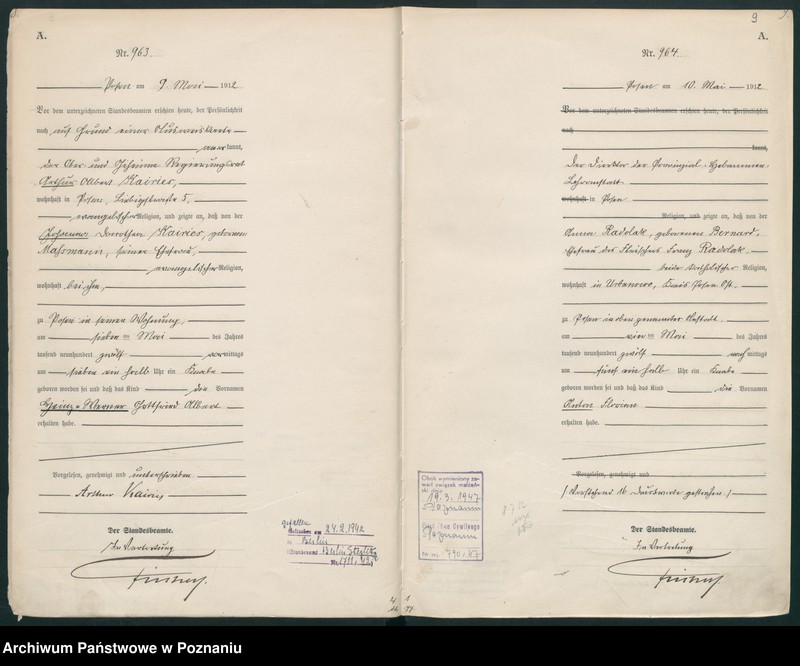 A.
Nr. 963.
Posen am 9. Mai 1912
Vor dem unterzeichneten Standesbeamten erschien heute, der Persönlichkeit
nach auf Grund einer Ausweiskarte
anerkannt,
der Ober- und Geheime Regierungsrat
Arthur Albert Kairies,
wohnhaft in Posen, 5,
evangelischer Religion, und zeigte an, daß von der
Johanna Dorothea Kairies, geborenen
Massmann, seiner Ehefrau,
evangelischer Religion,
wohnhaft bei ihm,
zu Posen in seiner Wohnung,
am sieben ten Mai des Jahres
tausend neunhundert zwölf vormittags
um sieben ein halb Uhr ein Knabe
geboren worden sei und daß das Kind die Vornamen
Heinz-Werner Gottfried Albert
erhalten habe.
Vorgelesen, genehmigt und unterschrieben
Arthur Kairies
Der Standesbeamte.
In Vertretung
gefallen
am 24.2.1942
in Berlin
Standesamt Berlin Steglitz
Nr.
9
A.
Nr. 964.
Posen am 10. Mai 1912
Vor dem unterzeichneten Standesbeamten erschien heute, der Persönlichkeit
nach
kannt,
Der Direktor der Provinzial-Hebammen-
Lehranstalt
wohnhaft in Posen
Religion, und zeigte an, daß von der
Anna Radolak, geborenen Bernard,
Ehefrau des Fleischers Franz Radolak,
beide katholischer Religion,
wohnhaft in Urbanowo, Kreis Posen Ost.
zu Posen in oben genannter Anstalt
am vier ten Mai des Jahres
tausend neunhundert zwölf nachmittags
um fünf ein halb Uhr ein Knabe
geboren worden sei und daß das Kind die Vornamen
Anton Florian
erhalten habe.
Vorgelesen, genehmigt und
/ Vorstehend 16 Druckworte gestrichen. /
Der Standesbeamte.
In Vertretung
Obok wymieniony za-
warł związek małżeń-
ski dnia
19.3.1947
Poznaniu
Urząd Stanu Cywilnego
Poznaniu
Nr. 790/47
Archiwum Państwowe w Poznaniu